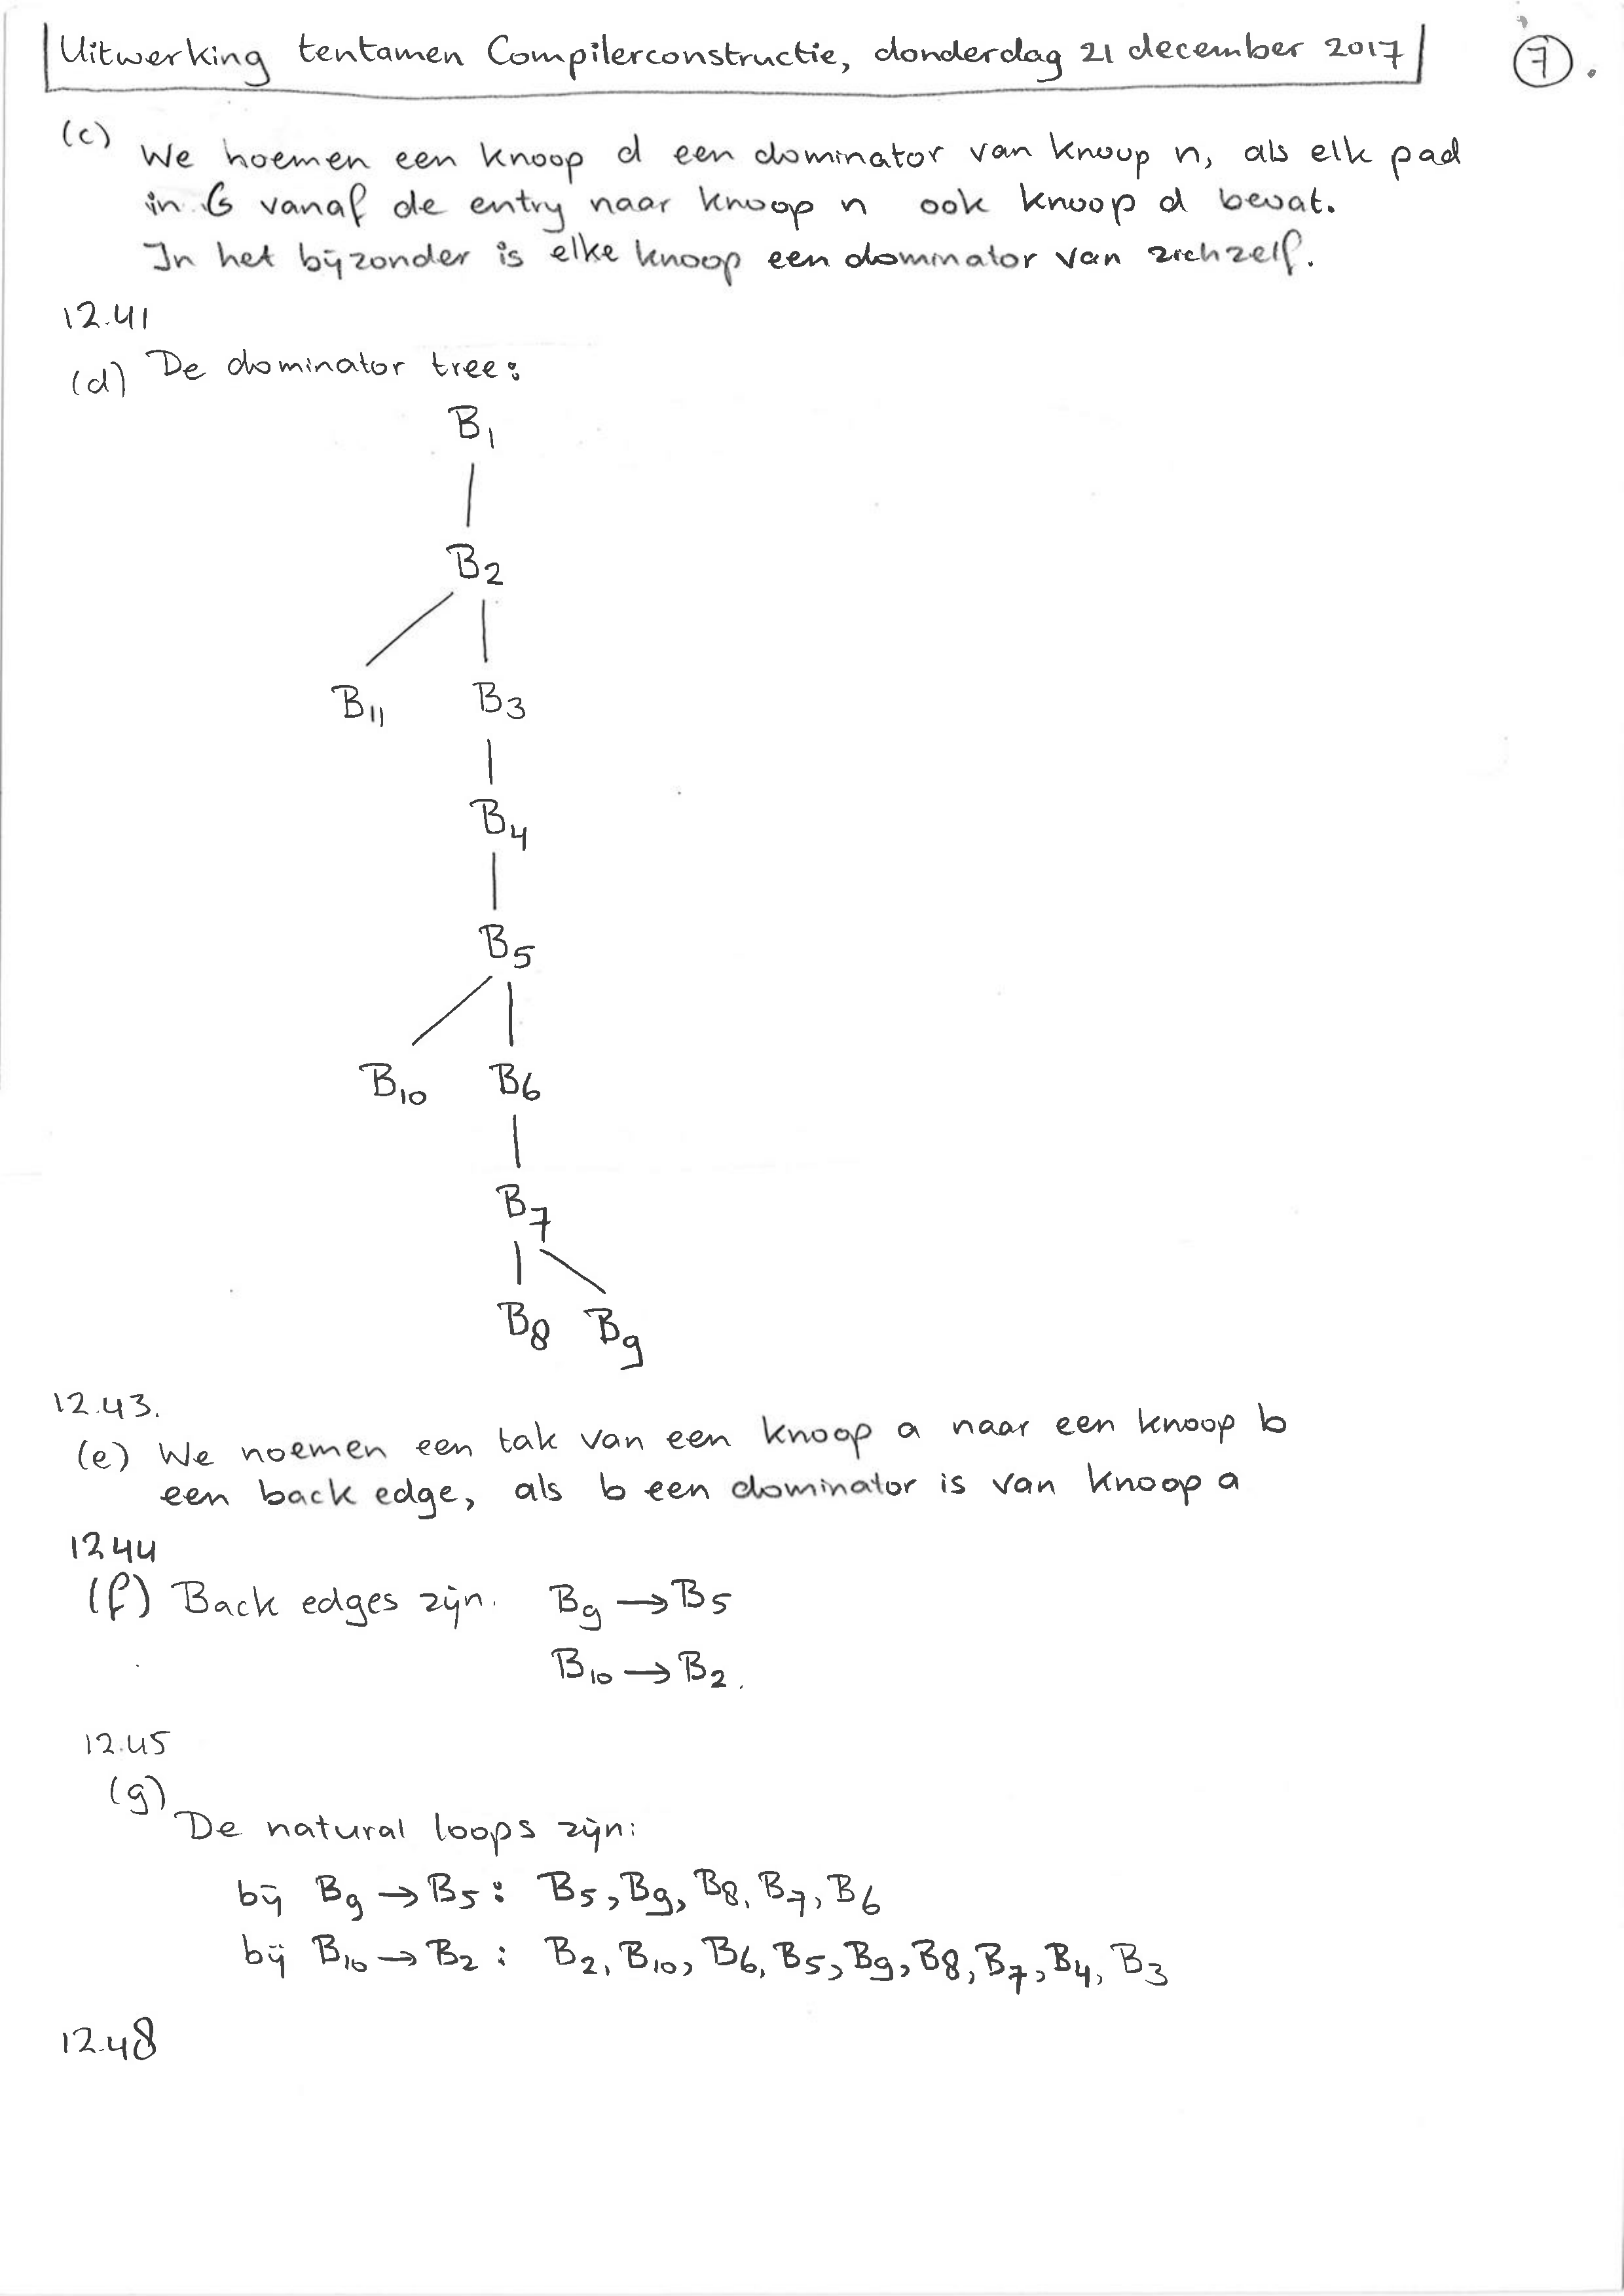 Uitwerking tentamen Compilerconstructie, donderdag 21 december 2017
7.
(c) We noemen een knoop d een dominator van knoop n, als elk pad
in G vanaf de entry naar knoop n ook knoop d bevat.
In het bijzonder is elke knoop een dominator van zichzelf.
12.41
(d) De dominator tree:
B1
B2
B11 B3
B4
B5
B10 B6
B7
B8 B9
12.43.
(e) We noemen een tak van een knoop a naar een knoop b
een back edge, als b een dominator is van knoop a
12.44
(f) Back edges zijn. B9 → B5
B10 → B2.
12.45
(g)
De natural loops zijn:
bij B9 → B5: B5, B9, B8, B7, B6
bij B10 → B2: B2, B10, B6, B5, B9, B8, B7, B4, B3
12.48